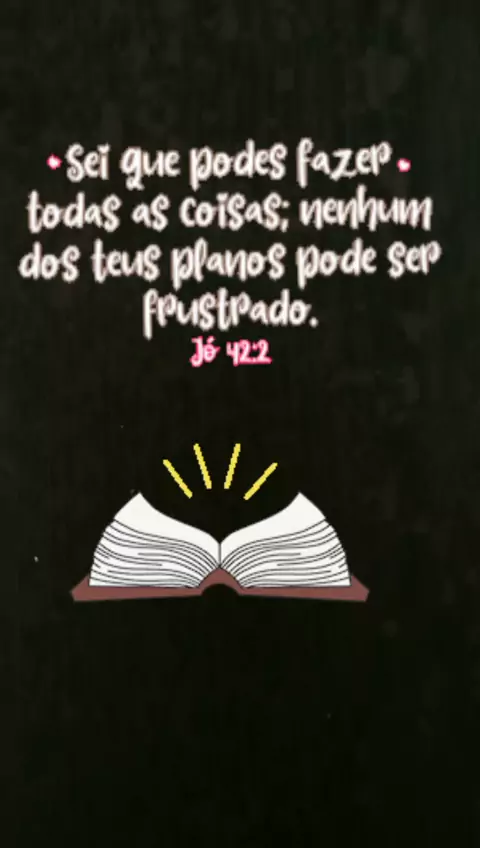 •Sei que podes fazer•
todas as coisas; nenhum
dos teus planos pode ser
frustrado.
Jó 42:2